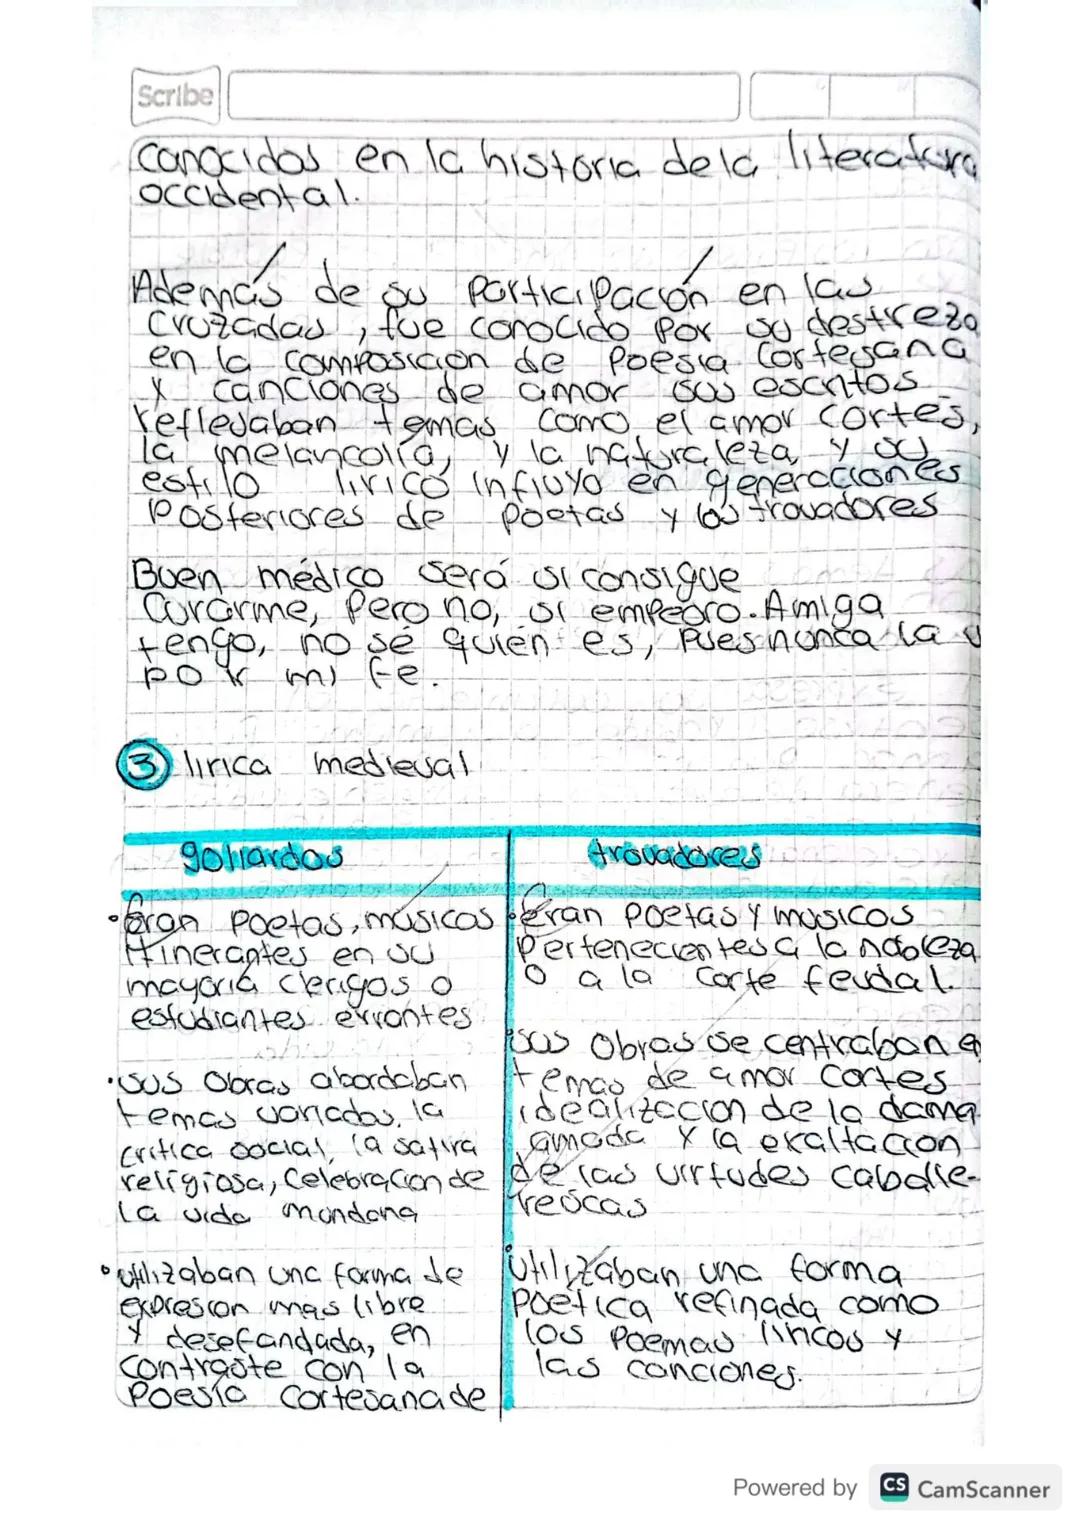 Scribe
conocidos en la historia de la literatura
occidental.
Además de su participación en las
cruzadas, fue conocido por su destreza
en la composicion de poesia cortesana
y canciones de amor sus escritos
reflejaban temas como el amor cortes,
la melancolía, y la naturaleza, y su
estilo lirico influyo en generaciones
Posteriores de poetas y los trovadores
Buen médico será si consigue
curarme, pero no, si empeoro. Amiga
tengo, no sé quién es, pues nunca la v
por mi fe.
3 lirica medieval
goliardos
trovadores
•Eran poetas, musicos
itinerantes en su
mayoria clerigos o
estudiantes errantes.
•sus obras abordaban
temas variados, la
critica social, la satira
religiosa, celebracion de
la vida mundana
•utilizaban una forma de
expresion mas libre
y desefandada, en
contraste con la
poesia cortesana de
•Eran poetas y musicos
pertenecientes a la nobleza
o a la corte feudal.
•sus obras se centraban en
temas de amor cortes
idealizacion de la dama
amada y la exaltacion
de las virtudes caballe-
rescas
•utilizaban una forma
poetica refinada como
los poemas liricos y
las canciones.
Powered by CS CamScanner